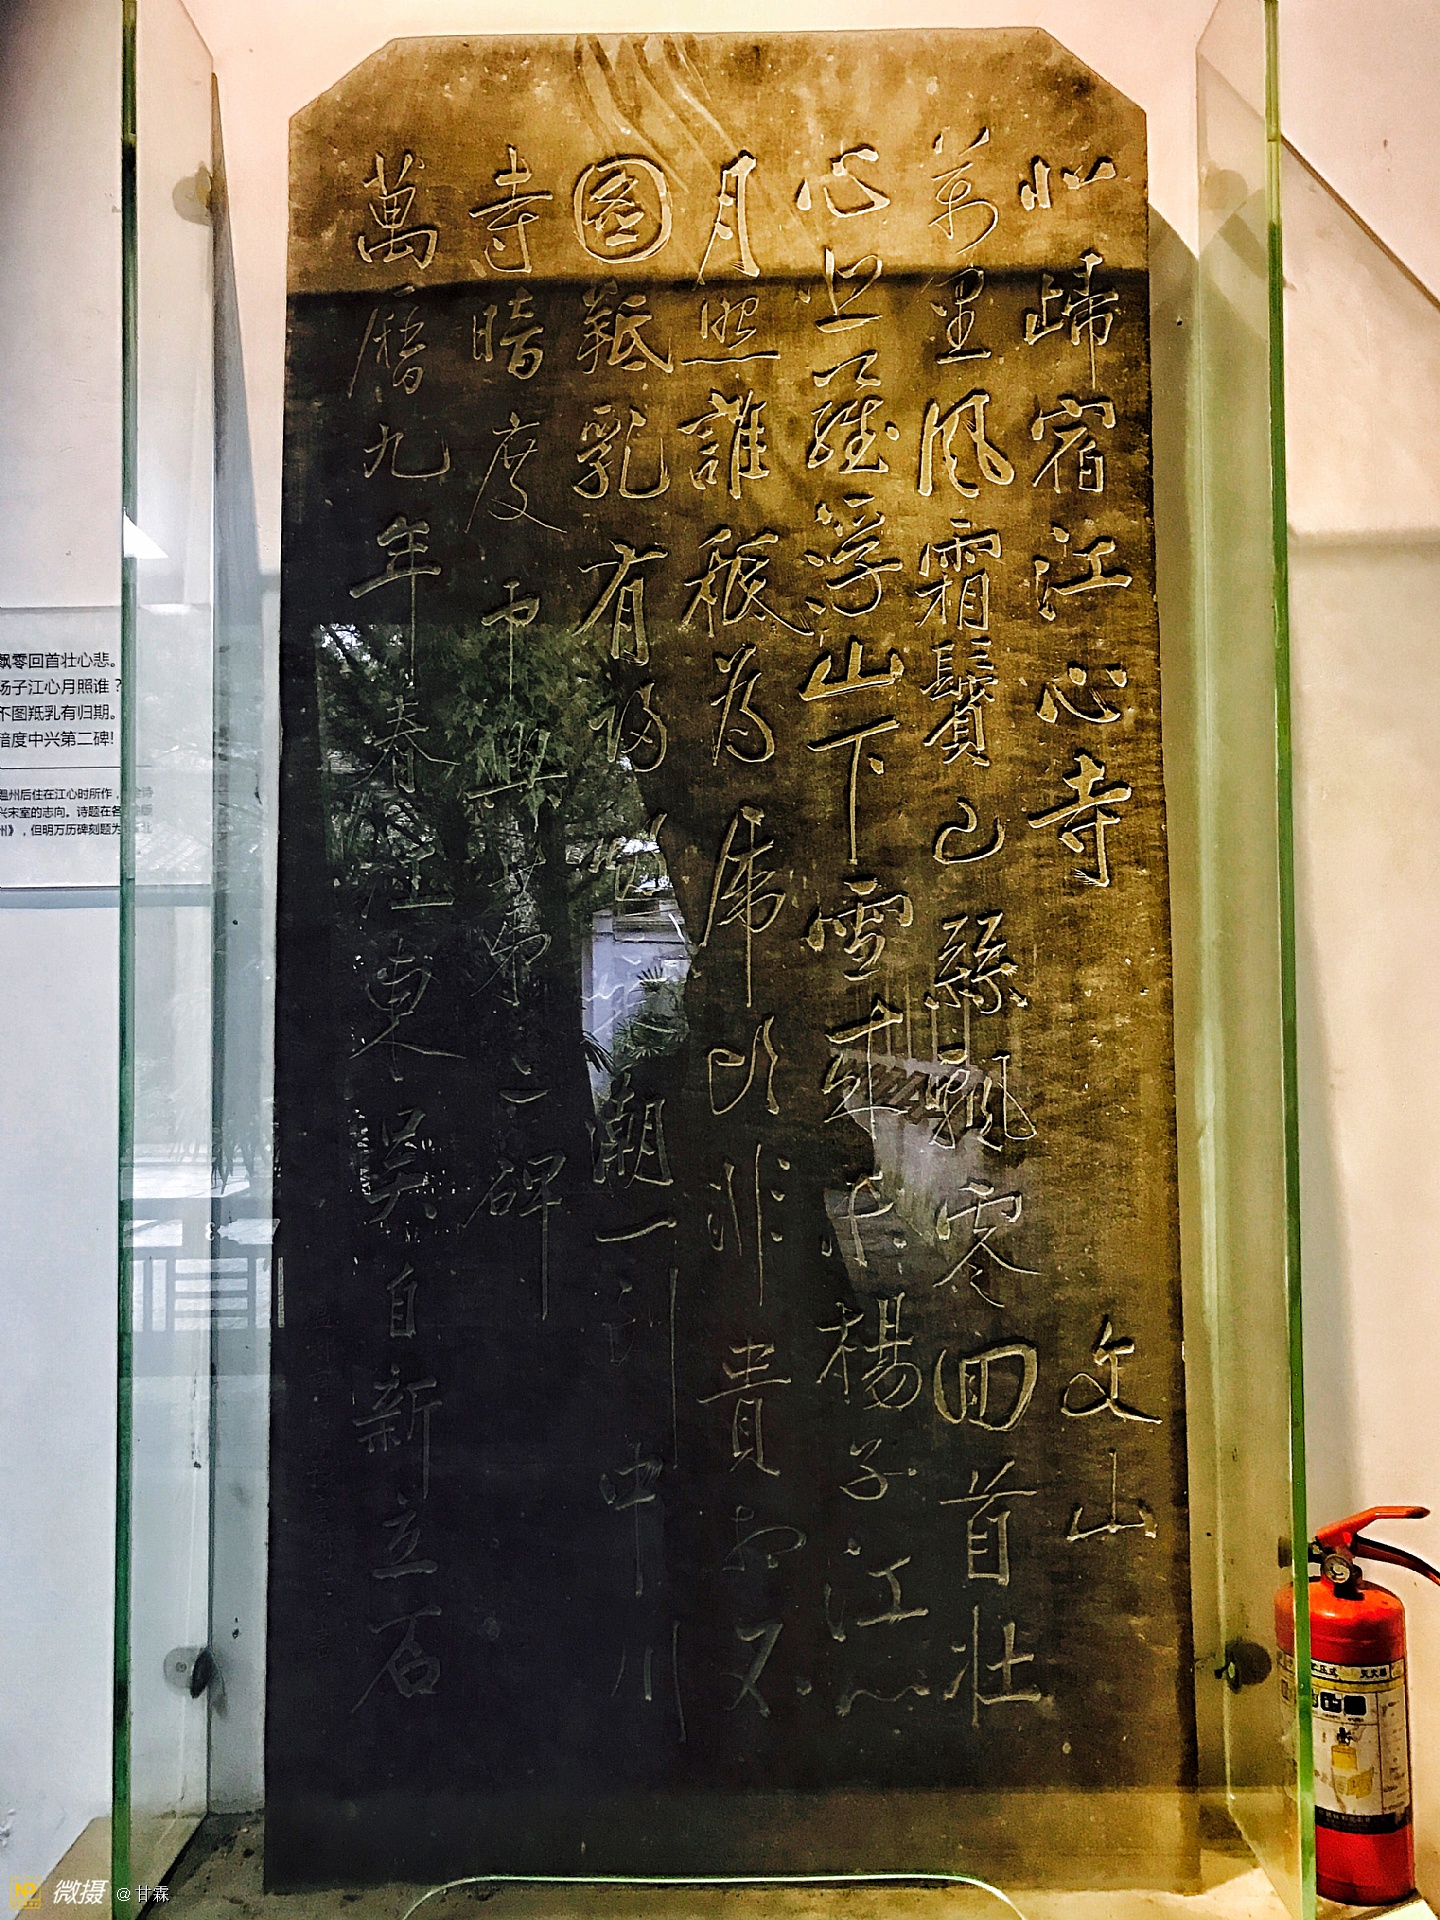 北歸宿江心寺 文山
萬里風霜鬢已絲飄零回首壯
心悲羅浮山下雪來未楊子江心
月照誰秪為虎頭非貴相不
圖羝乳有歸期乘潮一到中川
寺暗度中興第二碑
萬曆九年春江東吳自新立石
飘零回首壮心悲。
扬子江心月照谁？
不图羝乳有归期。
暗度中兴第二碑!
温州后住在江心时所作，诗
兴宋室的志向。诗题在各
州》，但明万历碑刻题为
微摄 @甘霖